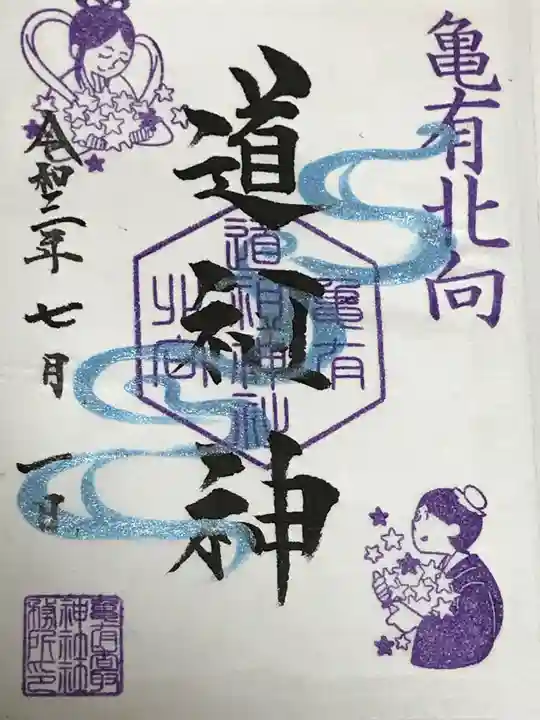 亀有北向
道祖神
亀有
道祖神社
北向
令和二年七月一日
亀有香取
神社社
務所印